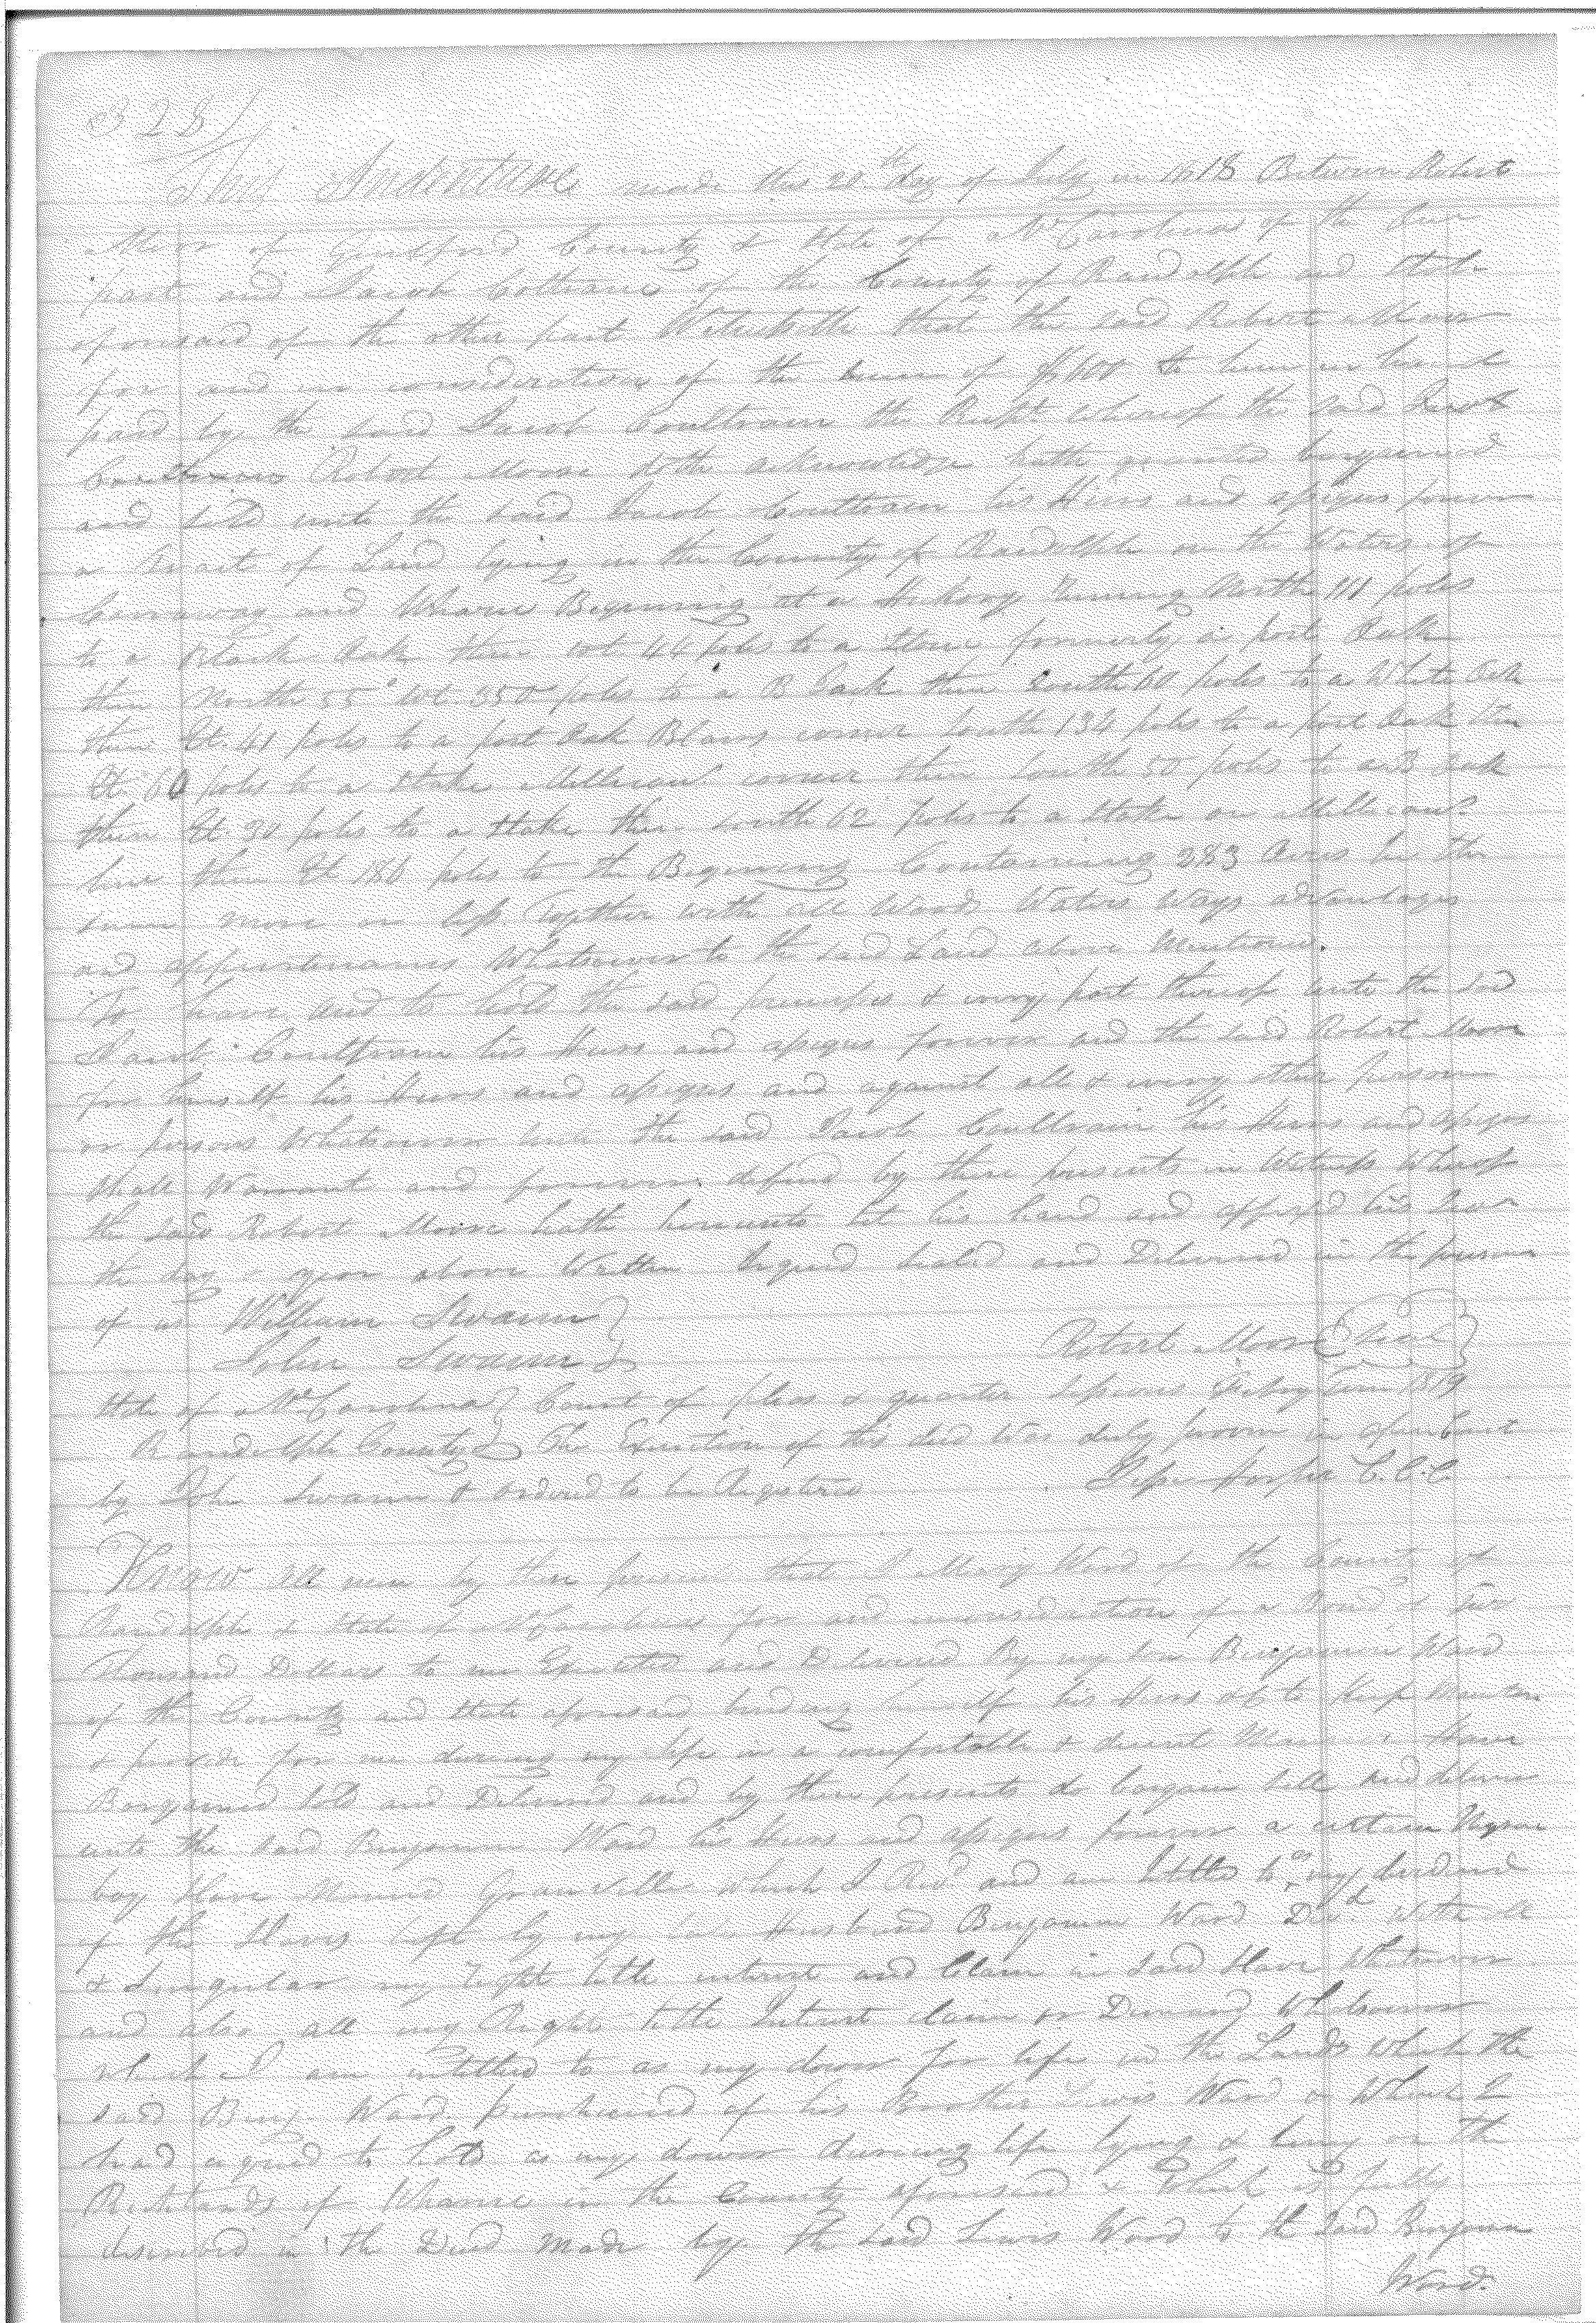 328
This Indenture made this 20th day of July in 1818 Between Robert
Moor of Guilford County & State of No Carolina of the One
part and Jacob Coltrane of the County of Randolph and State
aforesaid of the other part Witnesseth that the said Robert Moor
for and in consideration of the sum of $600 to him in hand
paid by the said Jacob Coultrain the Rcpt whereof the said
Robert Moore doth acknowledge hath granted bargained
and sold unto the said Jacob Coultrain his Heirs and assigns forever
a Tract of Land lying in the County of Randolph on the Waters of
Carraway and Uharie Beginning at a Hickory Runing North 111 poles
to a Black Oak then Wt 44 poles to a Stone formerly a post Oak
then North 55° Wt 350 poles to a B Oak then South 60 poles to a White Oak
then Et. 41 poles to a post Oak Blairs corner South 134 poles to a post Oak then
Et. 60 poles to a Stake Millicans corner then South 50 poles to a B Oak
then Et. 30 poles to a Stake then South 62 poles to a Stake on Millicans
line then Et 186 poles to the Beginning Containing 283 Acres be the
same more or less Together with all Woods Waters Ways advantages
and appurtenances Whatsoever to the said Land above Mentioned.
To have and to hold the said premises & every part thereof unto the sd
Jacob Coultrain his Heirs and assigns forever and the said Robert Moore
for himself his Heirs and assigns and against all & every other person
or persons Whatsoever unto the said Jacob Coultrain his Heirs and assigns
shall Warrant and forever defend by these presents in Witness Whereof
the said Robert Moore hath hereunto set his hand and affixed his Seal
the day & year above Written Signed Sealed and Delivered in the presence
of us William Swaim
John Swaim Robert Moore Seal
State of No Carolina Court of pleas & quarter Sessions Feby Term 1819
Randolph County The Execution of this deed Was duly proven in open Court
by John Swaim & ordered to be Registred Jesse Harper C.C.C.
Know All men by these presents that I Mary Ward of the County of
Randolph & State of No Carolina for and in consideration of a Bond
Thousand Dollars to me Executed and Delivered By my Son Benjamin Ward
of the County and State aforesaid binding himself his Heirs &C to Keep Maintain
& provide for me during my life in a comfortable & decent Manner Have
Bargained Sold and Delivered and by these presents do bargain Sell and deliver
unto the said Benjamin Ward his Heirs and assigns forever a certain Negroe
boy Slave Named Granville Which I Recd and am Intitled to as my dividend
of the Slaves left by my late Husband Benjamin Ward Decd With all
& Singular my right title interest and Claim in Said Slave Whatsoever
and also all my Right Title Interest claim or Demand Whatsoever
which I am intitled to as my dower for life in the Lands Which the
said Benj. Ward purchased of his Brother Lewis Ward on Which I
had agreed to hold as my dower during life lying & being on the
Richlands of Uharie in the County aforesaid & Which is fully
described in the Deed made by the said Lewis Ward to the said Benjamin
Ward.